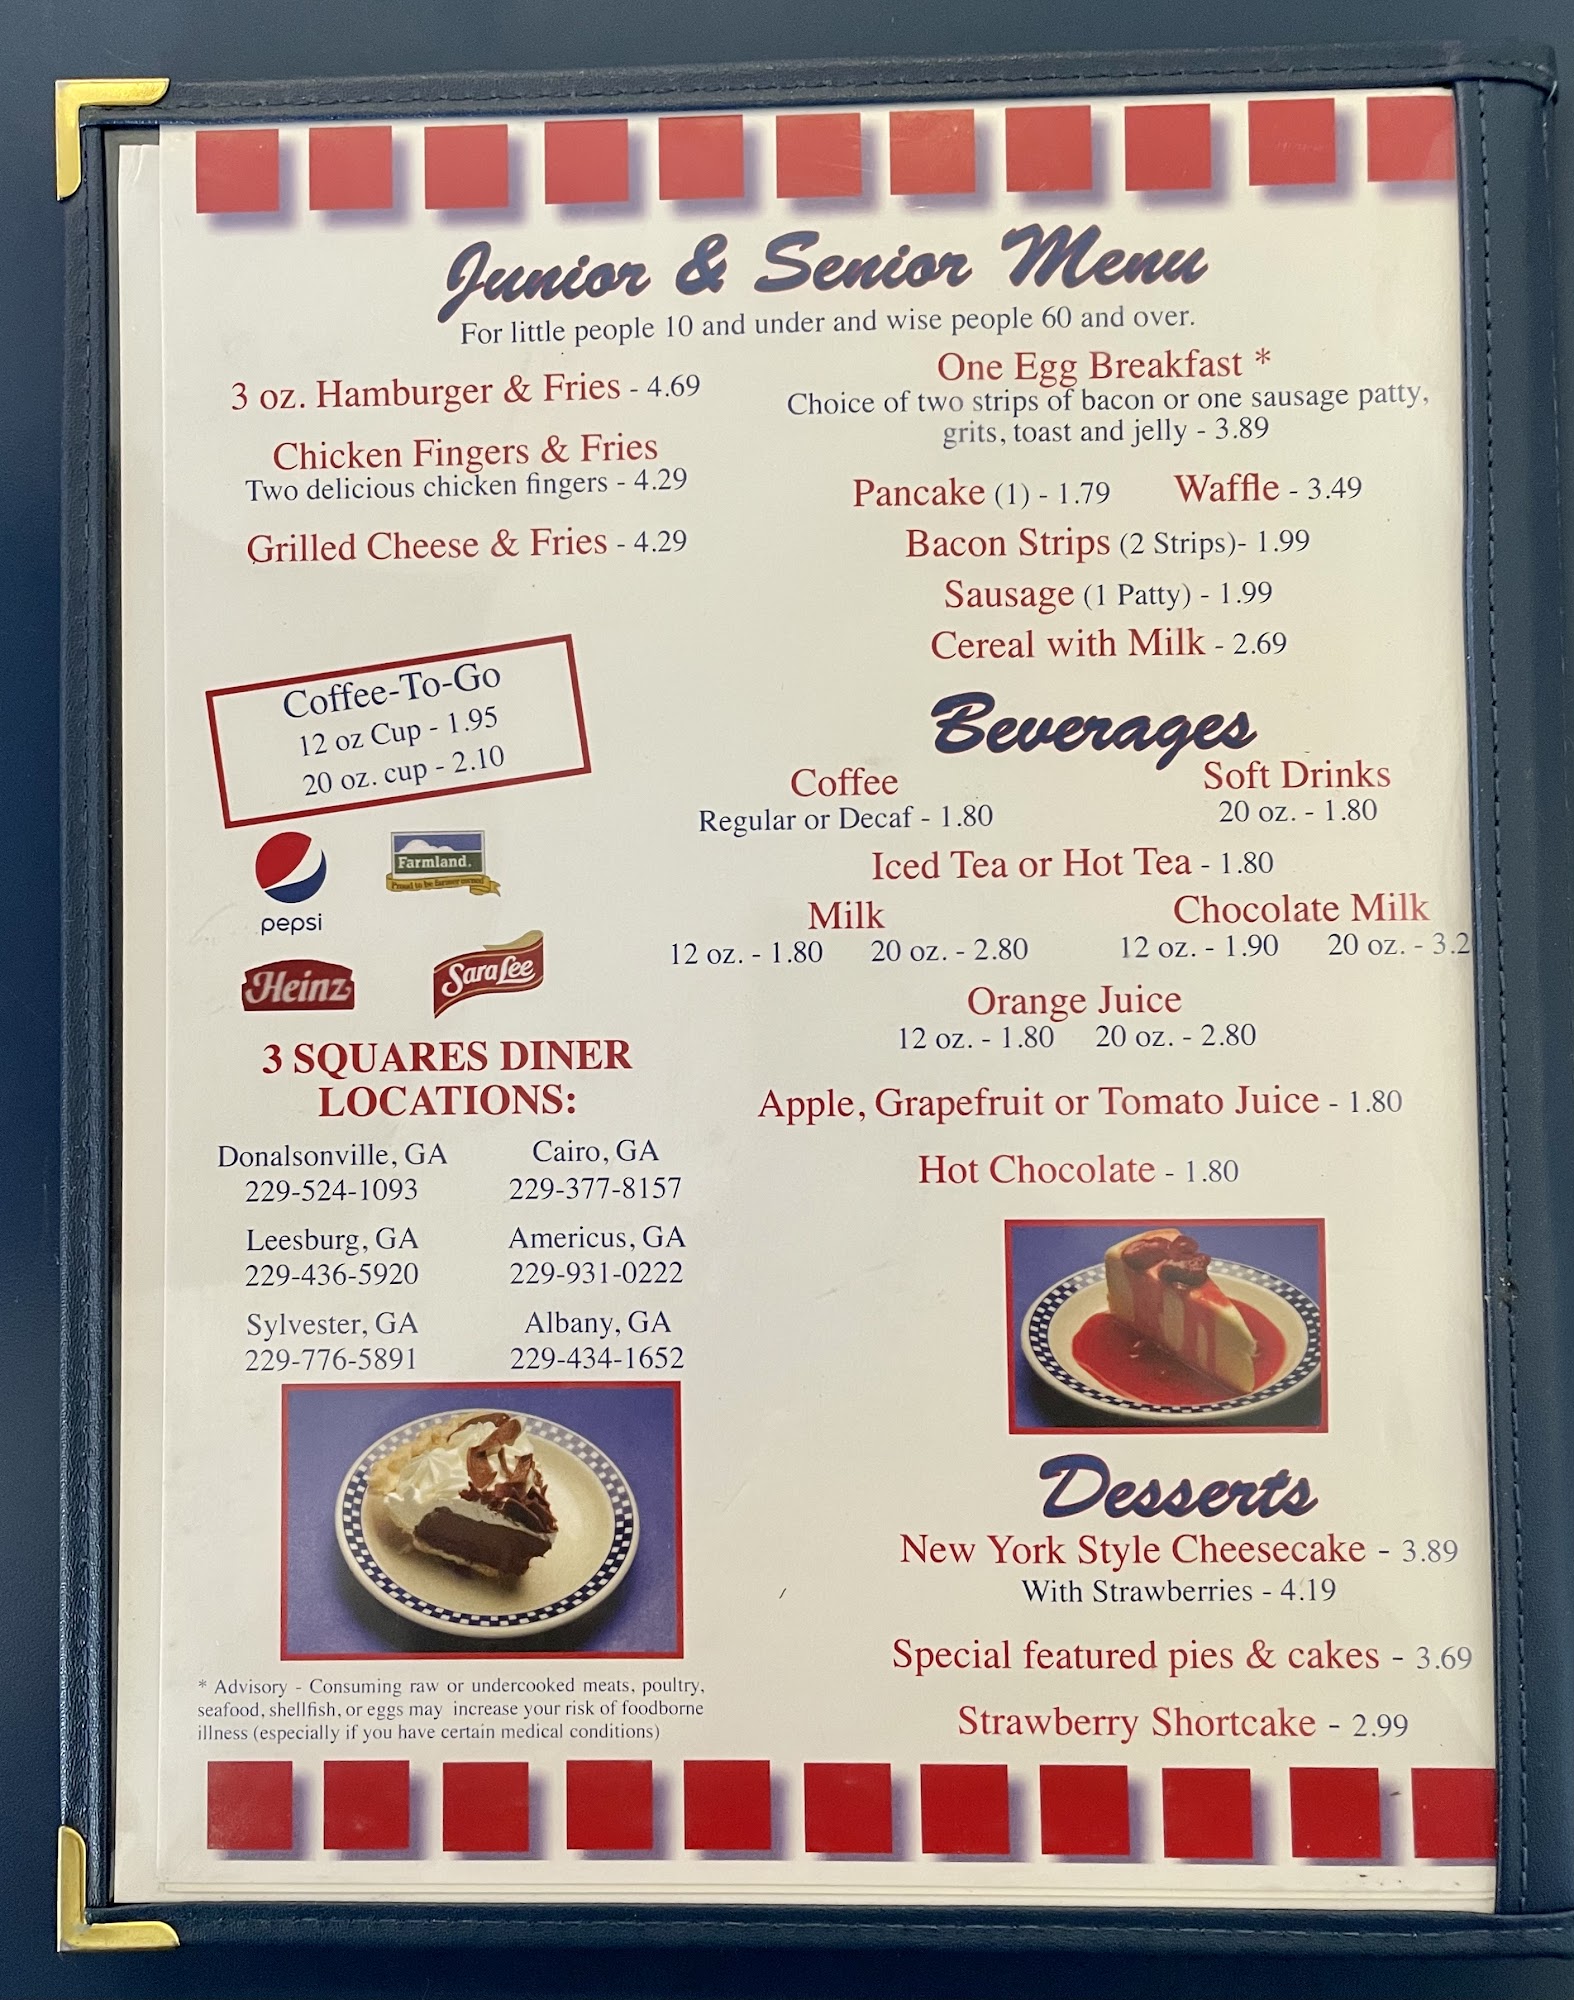 Junior & Senior Menu
For little people 10 and under and wise people 60 and over.
3 oz. Hamburger & Fries - 4.69
Chicken Fingers & Fries
Two delicious chicken fingers - 4.29
Grilled Cheese & Fries - 4.29
One Egg Breakfast *
Choice of two strips of bacon or one sausage patty,
grits, toast and jelly - 3.89
Pancake (1) - 1.79 Waffle - 3.49
Bacon Strips (2 Strips)- 1.99
Sausage (1 Patty) - 1.99
Cereal with Milk - 2.69
Coffee-To-Go
12 oz Cup - 1.95
20 oz. cup - 2.10
pepsi
Farmland.
Proud to be farmer owned
Heinz
Sara Lee
3 SQUARES DINER
LOCATIONS:
Donalsonville, GA Cairo, GA
229-524-1093 229-377-8157
Leesburg, GA Americus, GA
229-436-5920 229-931-0222
Sylvester, GA Albany, GA
229-776-5891 229-434-1652
* Advisory - Consuming raw or undercooked meats, poultry,
seafood, shellfish, or eggs may increase your risk of foodborne
illness (especially if you have certain medical conditions)
Beverages
Coffee Soft Drinks
Regular or Decaf - 1.80 20 oz. - 1.80
Iced Tea or Hot Tea - 1.80
Milk Chocolate Milk
12 oz. - 1.80 20 oz. - 2.80 12 oz. - 1.90 20 oz. - 3.2
Orange Juice
12 oz. - 1.80 20 oz. - 2.80
Apple, Grapefruit or Tomato Juice - 1.80
Hot Chocolate - 1.80
Desserts
New York Style Cheesecake - 3.89
With Strawberries - 4.19
Special featured pies & cakes - 3.69
Strawberry Shortcake - 2.99